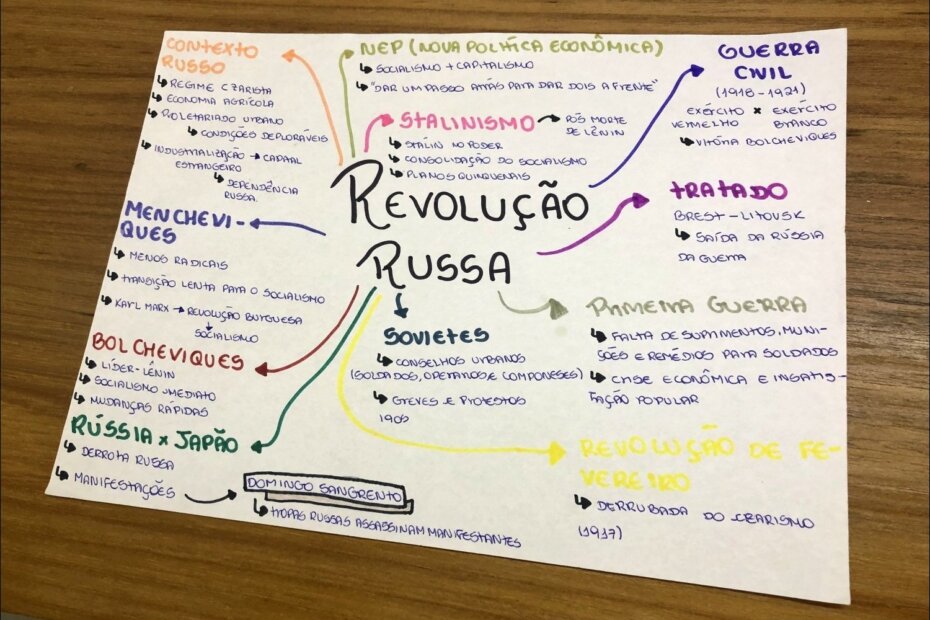 CONTEXTO
RUSSO
REGIME CZARISTA
ECONOMIA AGRÍCOLA
PROLETARIADO URBANO
CONDIÇÕES DEPLORÁVEIS
INDUSTRIALIZAÇÃO → CAPITAL
ESTRANGEIRO
DEPENDÊNCIA
RUSSA.
NEP (NOVA POLÍTICA ECONÔMICA)
SOCIALISMO + CAPITALISMO
"DAR UM PASSO ATRÁS PARA DAR DOIS A FRENTE"
STALINISMO → PÓS MORTE
DE LÊNIN
STALIN NO PODER
CONSOLIDAÇÃO DO SOCIALISMO
PLANOS QUINQUENAIS
GUERRA
CIVIL
(1918-1921)
EXÉRCITO × EXÉRCITO
VERMELHO BRANCO
VITÓRIA BOLCHEVIQUES
REVOLUÇÃO
RUSSA
TRATADO
BREST-LITOVSK
SAÍDA DA RÚSSIA
DA GUERRA
MENCHEVI-
QUES
MENOS RADICAIS
TRANSIÇÃO LENTA PARA O SOCIALISMO
KARL MARX → REVOLUÇÃO BURGUESA
SOCIALISMO
BOLCHEVIQUES
LÍDER-LÊNIN
SOCIALISMO IMEDIATO
MUDANÇAS RÁPIDAS
SOVIETES
CONSELHOS URBANOS
(SOLDADOS, OPERÁRIOS, E COMPONESES)
GREVES E PROTESTOS
1905
PRIMEIRA GUERRA
FALTA DE SUPRIMENTOS, MUNI-
ÇÕES E REMÉDIOS PARA SOLDADOS
CRISE ECONÔMICA E INSATIS-
FAÇÃO POPULAR
RÚSSIA × JAPÃO
DERROTA RUSSA
MANIFESTAÇÕES → DOMINGO SANGRENTO
TROPAS RUSSAS ASSASSINAM MANIFESTANTES
REVOLUÇÃO DE FE-
VEREIRO
DERRUBADA DO CZARISMO
(1917)